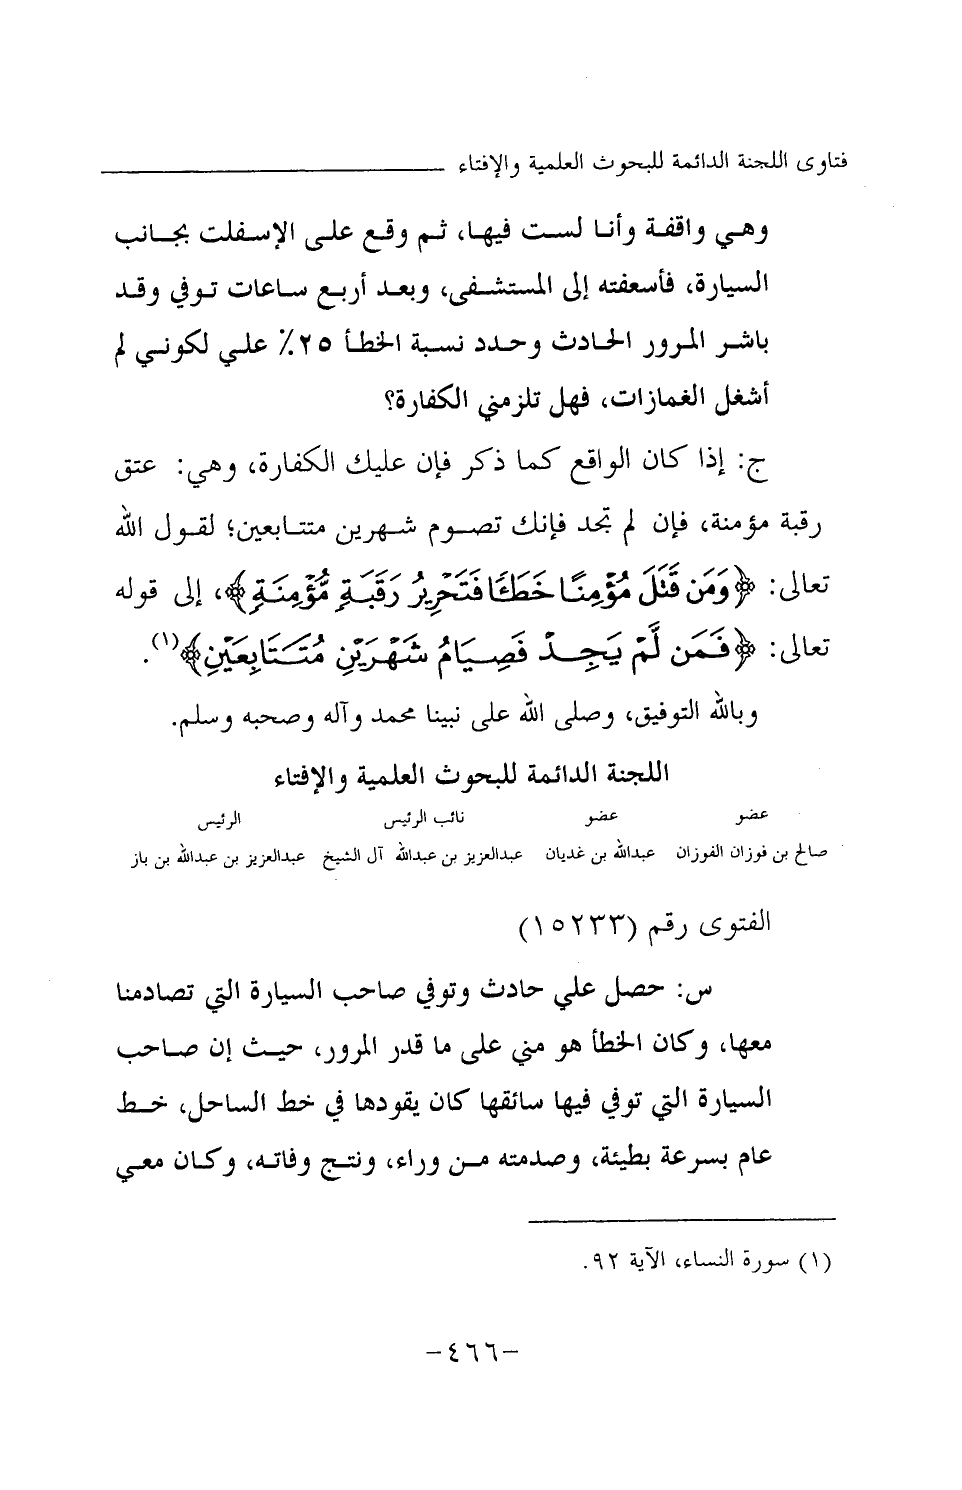 فتاوى اللجنة الدائمة للبحوث العلمية والإفتاء
وهي واقفة وأنا لست فيها، ثم وقع على الإسفلت بجانب
السيارة، فأسعفته إلى المستشفى، وبعد أربع ساعات توفي وقد
باشر المرور الحادث وحدد نسبة الخطأ ٢٥٪ علي لكوني لم
أشغل الغمازات، فهل تلزمني الكفارة؟
ج: إذا كان الواقع كما ذكر فإن عليك الكفارة، وهي: عتق
رقبة مؤمنة، فإن لم تجد فإنك تصوم شهرين متتابعين؛ لقول الله
تعالى: ﴿وَمَن قَتَلَ مُؤْمِنًا خَطَـًٔا فَتَحْرِيرُ رَقَبَةٍ مُّؤْمِنَةٍ﴾، إلى قوله
تعالى: ﴿فَمَن لَّمْ يَجِدْ فَصِيَامُ شَهْرَيْنِ مُتَتَابِعَيْنِ﴾(١).
وبالله التوفيق، وصلى الله على نبينا محمد وآله وصحبه وسلم.
اللجنة الدائمة للبحوث العلمية والإفتاء
عضو عضو نائب الرئيس الرئيس
صالح بن فوزان الفوزان عبدالله بن غديان عبدالعزيز بن عبدالله آل الشيخ عبدالعزيز بن عبدالله بن باز
الفتوى رقم (١٥٢٣٣)
س: حصل علي حادث وتوفي صاحب السيارة التي تصادمنا
معها، وكان الخطأ هو مني على ما قدر المرور، حيث إن صاحب
السيارة التي توفي فيها سائقها كان يقودها في خط الساحل، خط
عام بسرعة بطيئة، وصدمته من وراء، ونتج وفاته، وكان معي
(١) سورة النساء، الآية ٩٢.
-٤٦٦-